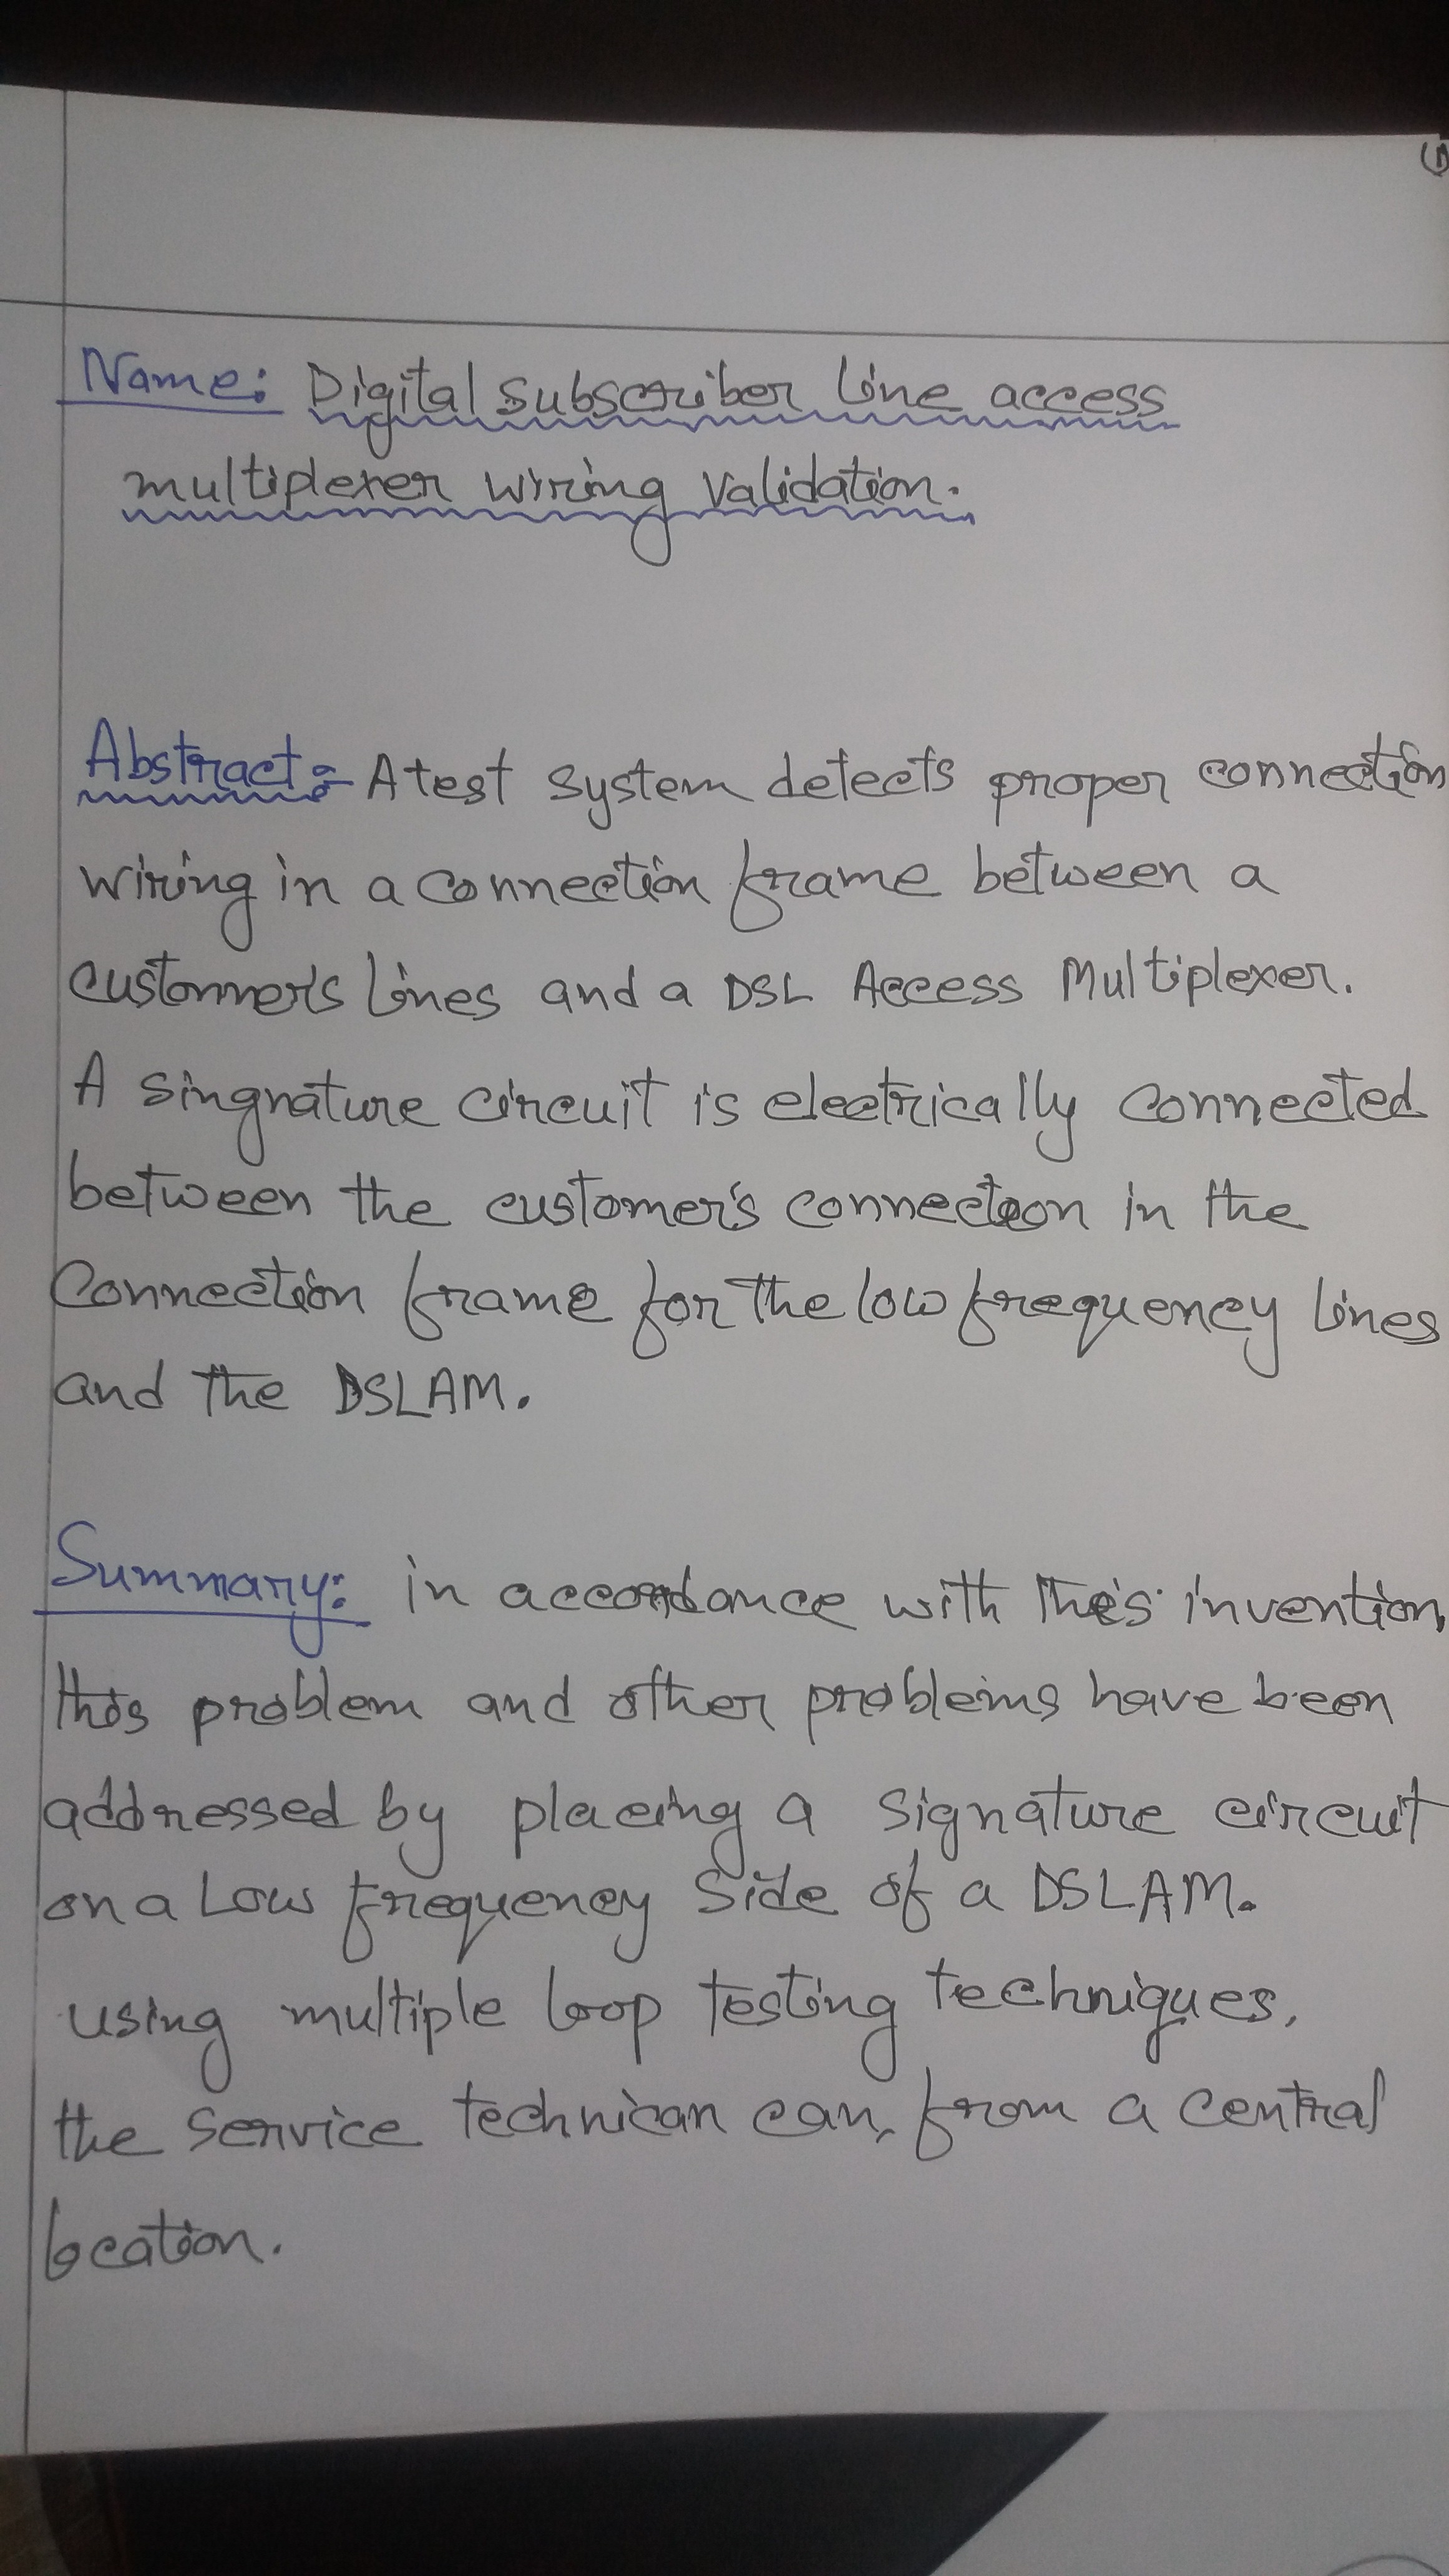 Name: Digital Subscriber line access
multiplexer wiring validation.
Abstract:- A test system detects proper connection
wiring in a connection frame between a
customner's lines and a DSL Access Multiplexer.
A singnature circuit is electrically connected
between the customer's connection in the
Connection frame for the low frequency lines
and the DSLAM.
Summary: in accordance with this invention,
this problem and other problems have been
addressed by placing a signature circuit
on a Low frequency Side of a DSLAM.
using multiple loop testing techniques,
the service technican can, from a central
location.